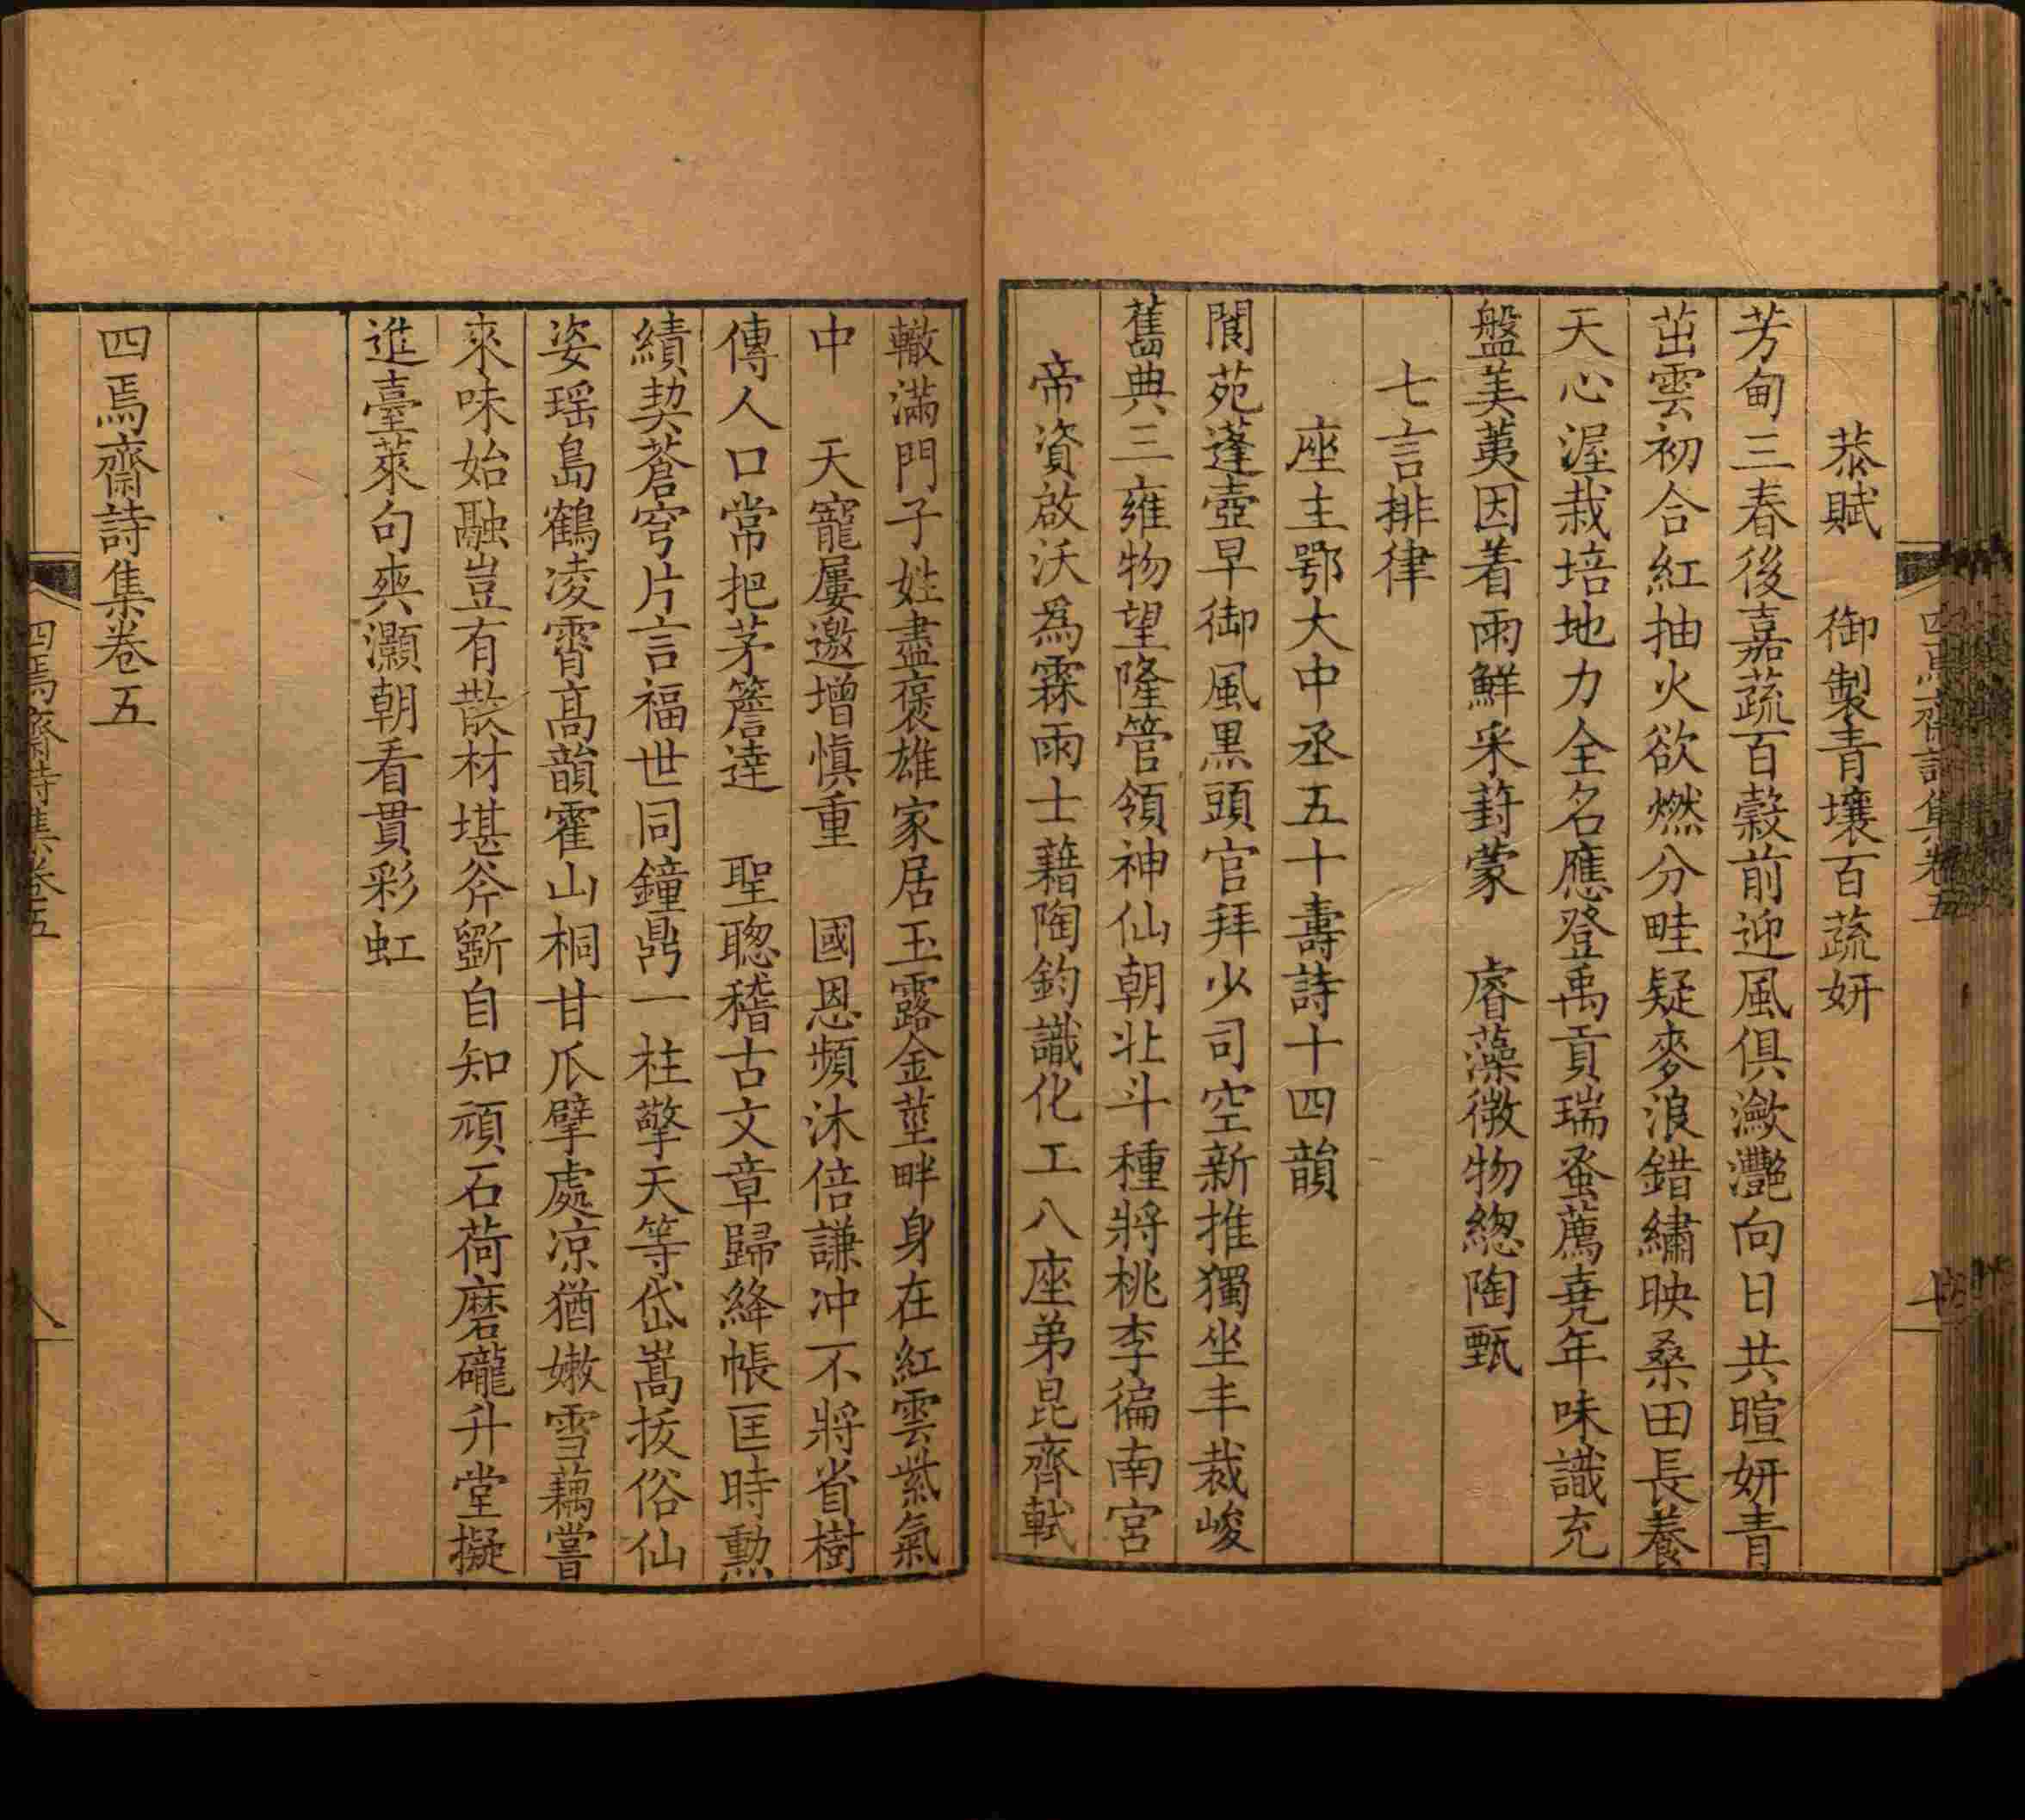 恭賦　御製青壤百蔬妍
芳甸三春後嘉蔬百穀前迎風俱瀲灧向日共暄妍青
茁雲初合紅抽火欲燃分畦疑麥浪錯繡映桑田長養
天心渥栽培地力全名應登禹貢瑞蚤薦堯年味識充
盤美荑因着雨鮮采葑蒙　睿藻微物總陶甄
七言排律
座主鄂大中丞五十壽詩十四韻
閬苑蓬壺早御風黑頭官拜少司空新推獨坐丰裁峻
舊典三雍物望隆管領神仙朝北斗種將桃李徧南宮
帝資啟沃為霖雨士藉陶鈞識化工八座弟昆齊軾
轍滿門子姓盡褒雄家居玉露金莖畔身在紅雲紫氣
中　天寵屢邀增慎重　國恩頻沐倍謙冲不將省樹
傳人口常把茅簷達　聖聰稽古文章歸絳帳匡時勲
績契蒼穹片言福世同鐘鼎一柱擎天等岱嵩拔俗仙
姿瑶島鶴凌霄高韻霍山桐甘瓜擘處凉猶嫩雪藕嘗
來味始融豈有散材堪斧斵自知頑石荷磨礲升堂擬
進臺萊句爽灝朝看貫彩虹
四焉齋詩集卷五
四焉齋詩集卷五
八